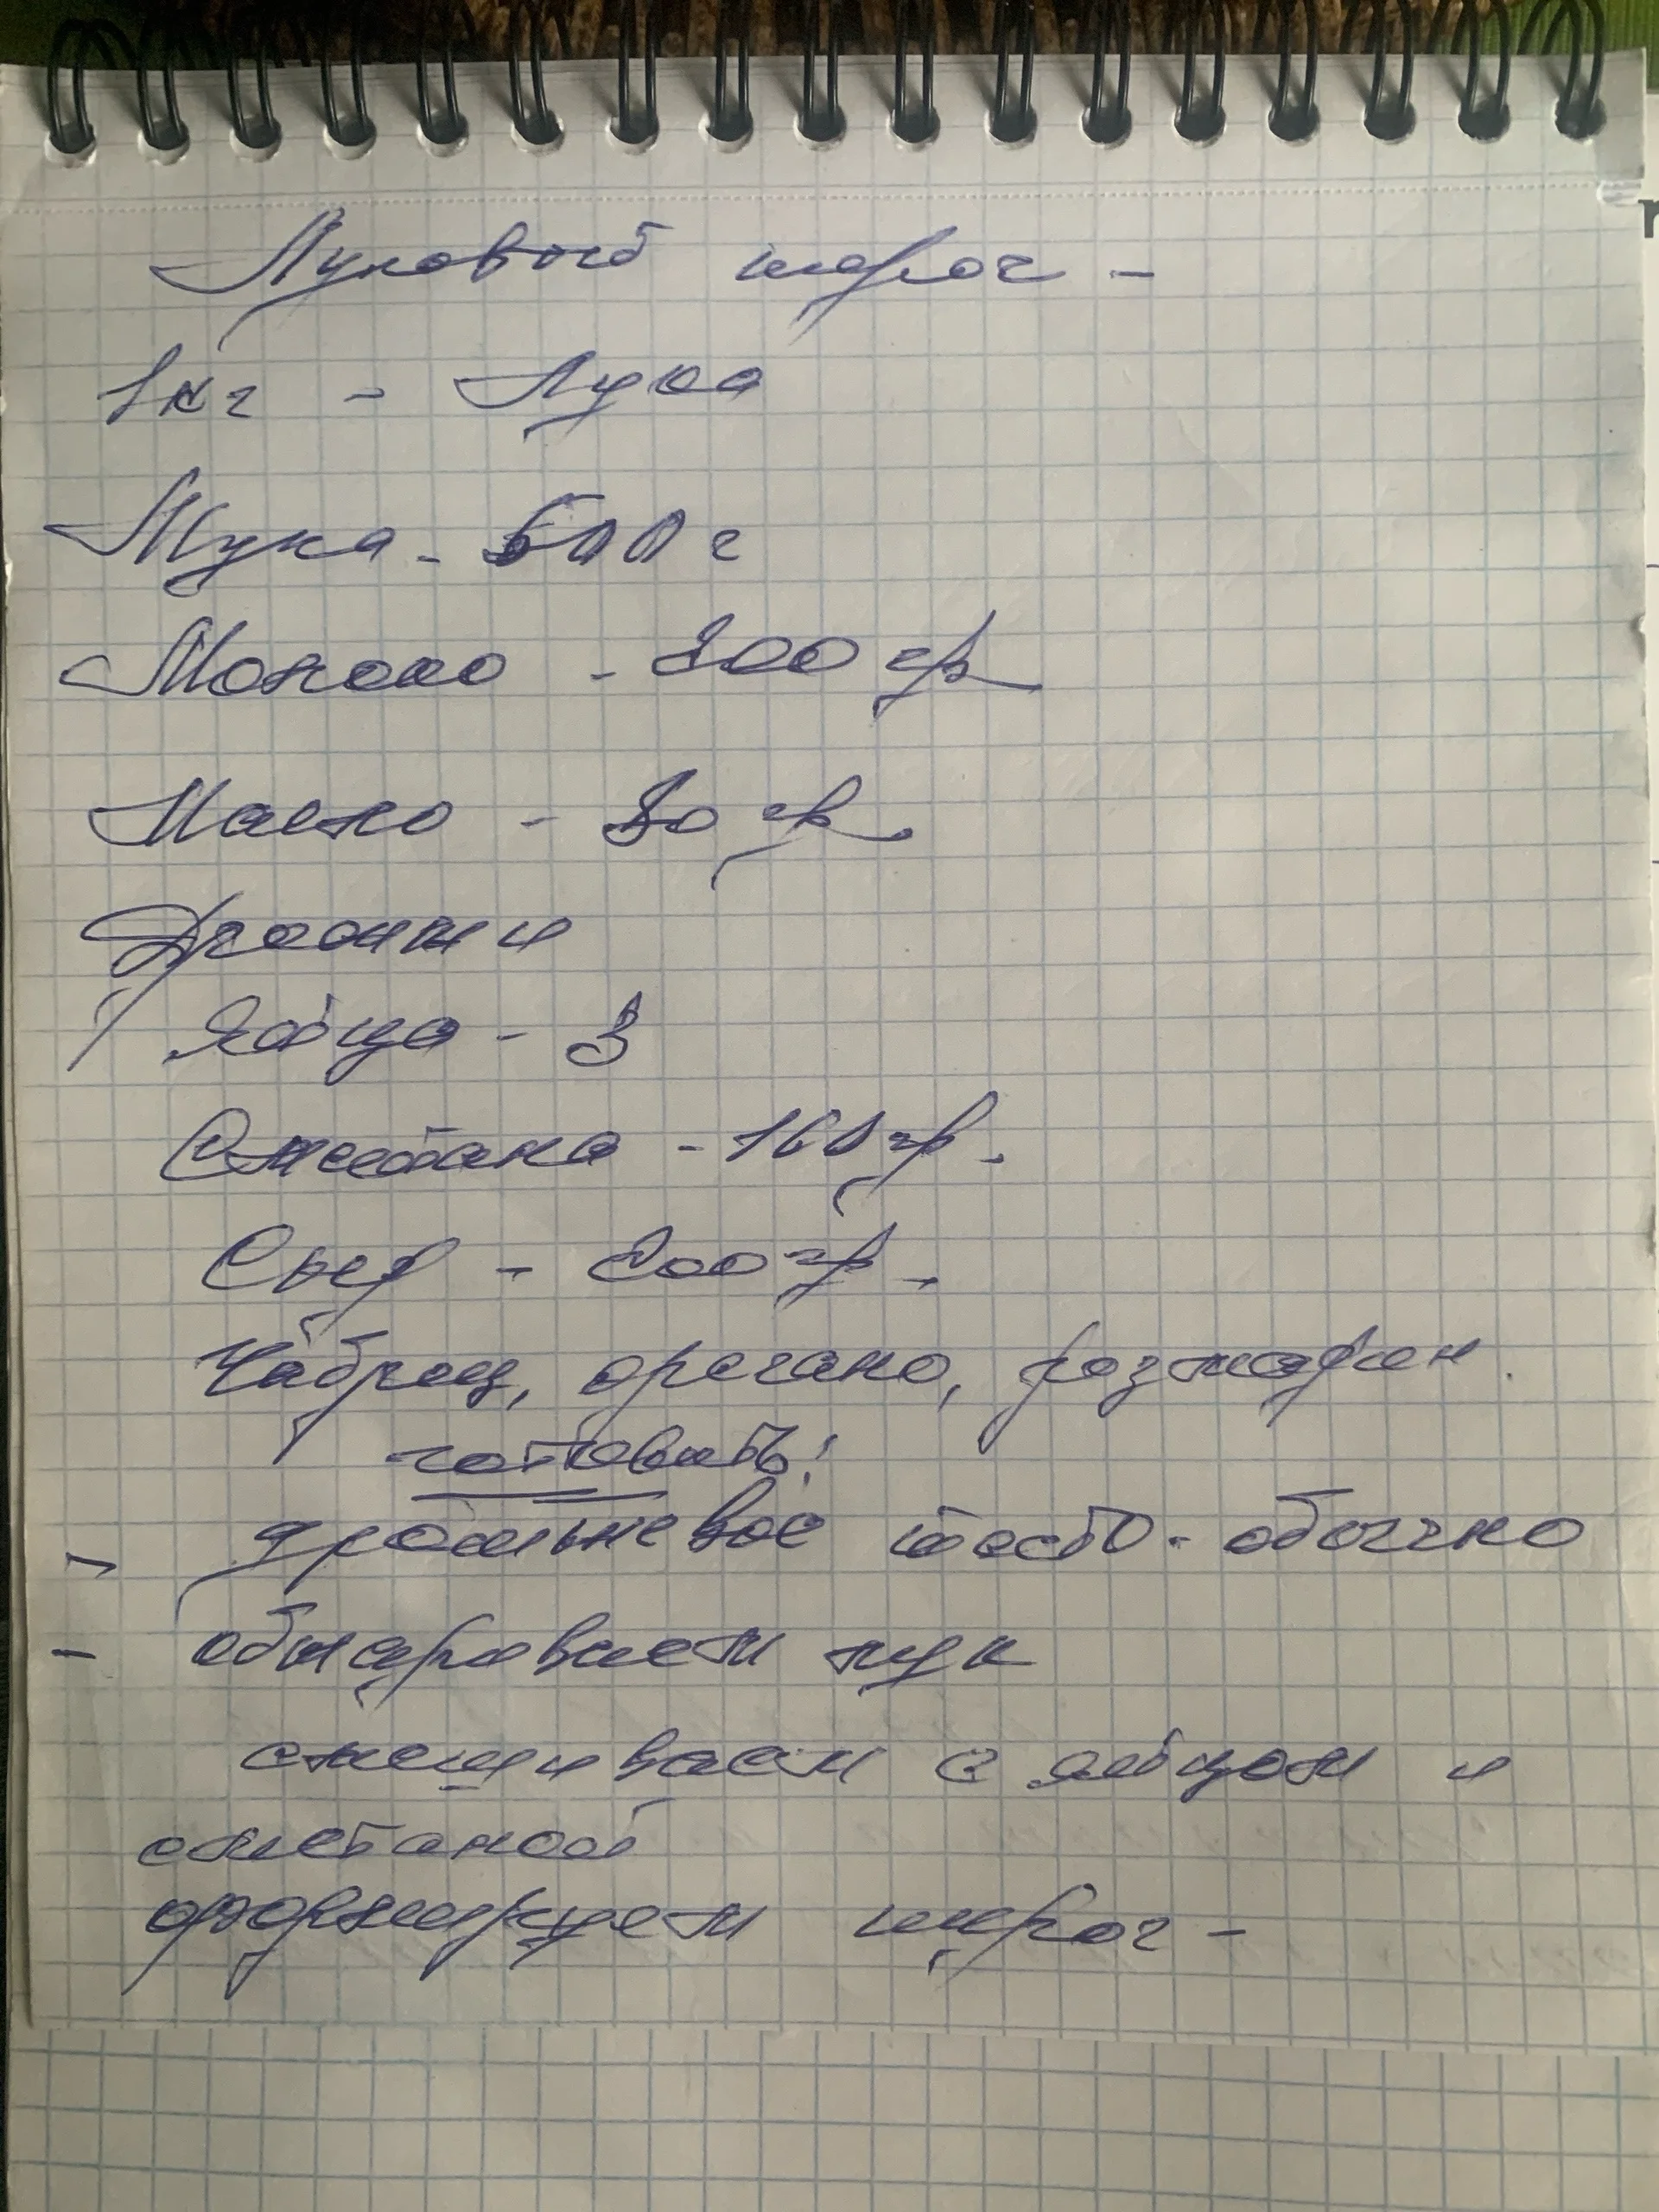 Луковый пирог -
1кг - Лука
Мука - 500 г
Молоко - 200 гр
Масло - 80 гр.
Дрожжи
Яйца - 3
Сметана - 160 гр.
Сыр - 200 гр.
Чабрец, орегано, розмарин.
готовить:
- дрожжевое тесто - обычно
- обжариваем лук
смешиваем с яйцом и
сметаной
формируем пирог -